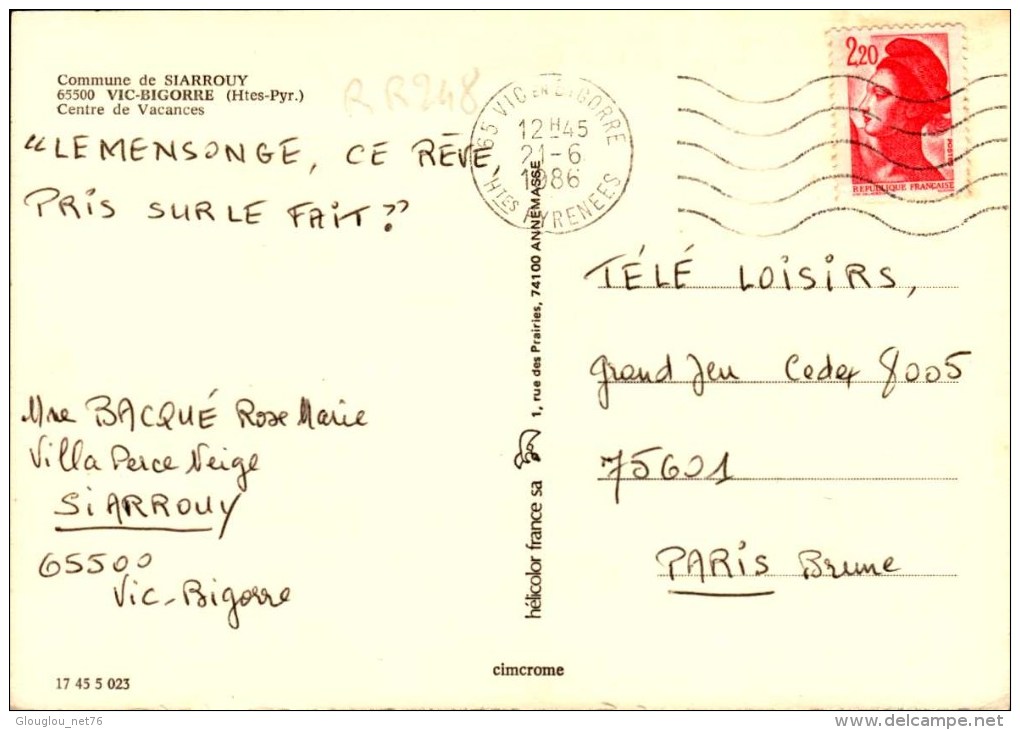 Commune de SIARROUY
65500 VIC-BIGORRE (Htes-Pyr.)
Centre de Vacances
RR248
65 VIC EN BIGORRE
12H45
21-6
1986
HTES PYRENEES
2,20
POSTES
REPUBLIQUE FRANÇAISE
“LE MENSONGE, CE RÊVE
PRIS SUR LE FAIT?”
TÉLÉ LOISIRS,
grand Jeu Cedex 8005
75601
PARIS Brune
Mme BACQUÉ Rose Marie
Villa Perce Neige
SIARROUY
65500
Vic-Bigorre
hélicolor france sa 1, rue des Prairies, 74100 ANNEMASSE
cimcrome
17 45 5 023
Glouglou_net76